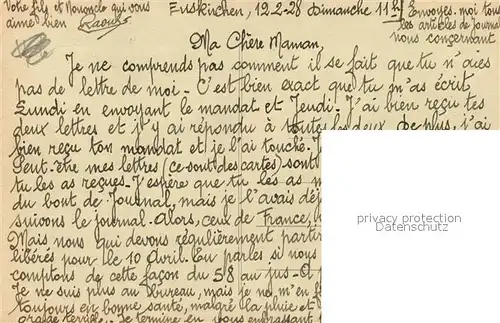 Votre fils et Nononcle qui vous
aime bien Raoul
Euskirchen, 12-2-28 Dimanche 11 H
Envoyez-moi tous
les articles de journal
nous concernant
Ma Chère Maman,
Je ne comprends pas comment il se fait que tu n'aies
pas de lettre de moi. C'est bien exact que tu m'as écrit
Lundi en envoyant le mandat et Jeudi. J'ai bien reçu tes
deux lettres et j'y ai répondu à toutes les deux. De plus, j'ai
bien reçu ton mandat et je l'ai touché.
Peut-être mes lettres (ce sont des cartes) sont
tu les as reçues. J'espère que tu les as
du bout de Journal, mais je l'avais déj
suivons le journal. Alors, ceux de France,
Mais nous qui devons régulièrement partir
libérés pour le 10 Avril. Tu parles si nous
comptons de cette façon du 58 au jus. A
Je ne suis plus au bureau, mais je ne m'en f
toujours en bonne santé, malgré la pluie et
Je termine en vous embrassant
privacy protection
Datenschutz